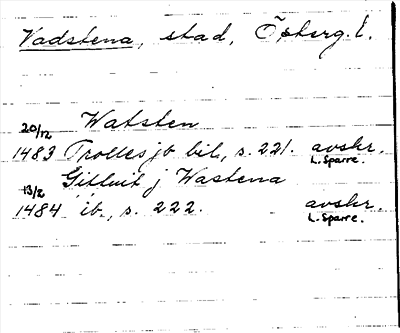 Vadstena, stad, Östergl.
Watsten
20/12
1483 Trollesjö bil., s. 221. avskr.
L. Sparre.
Giltuit j Wastena
13/2
1484 ib., s. 222. avskr.
L. Sparre.